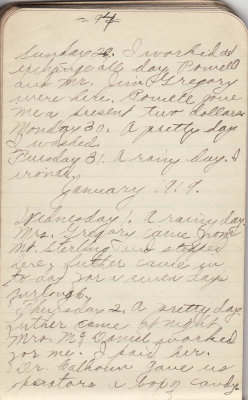 Sunday 29. I worked at
exchange all day. Powell
and Mr. Jim Gregory
were here. Powell gave
me a present two dollars.
Monday 30. A pretty day
I washed.
Tuesday 31. A rainy day. I
ironed.
January 1919.
Wednesday 1. A rainy day
Mrs. Gregory came from
Mt. Sterling and stopped
here. Luther came in
to-day for a seven days
furlough.
Thursday 2. A pretty day
Luther came at night.
Mrs. McDaniel worked
for me. I paid her.
Dr. Calhoun gave us
operators a box candy.